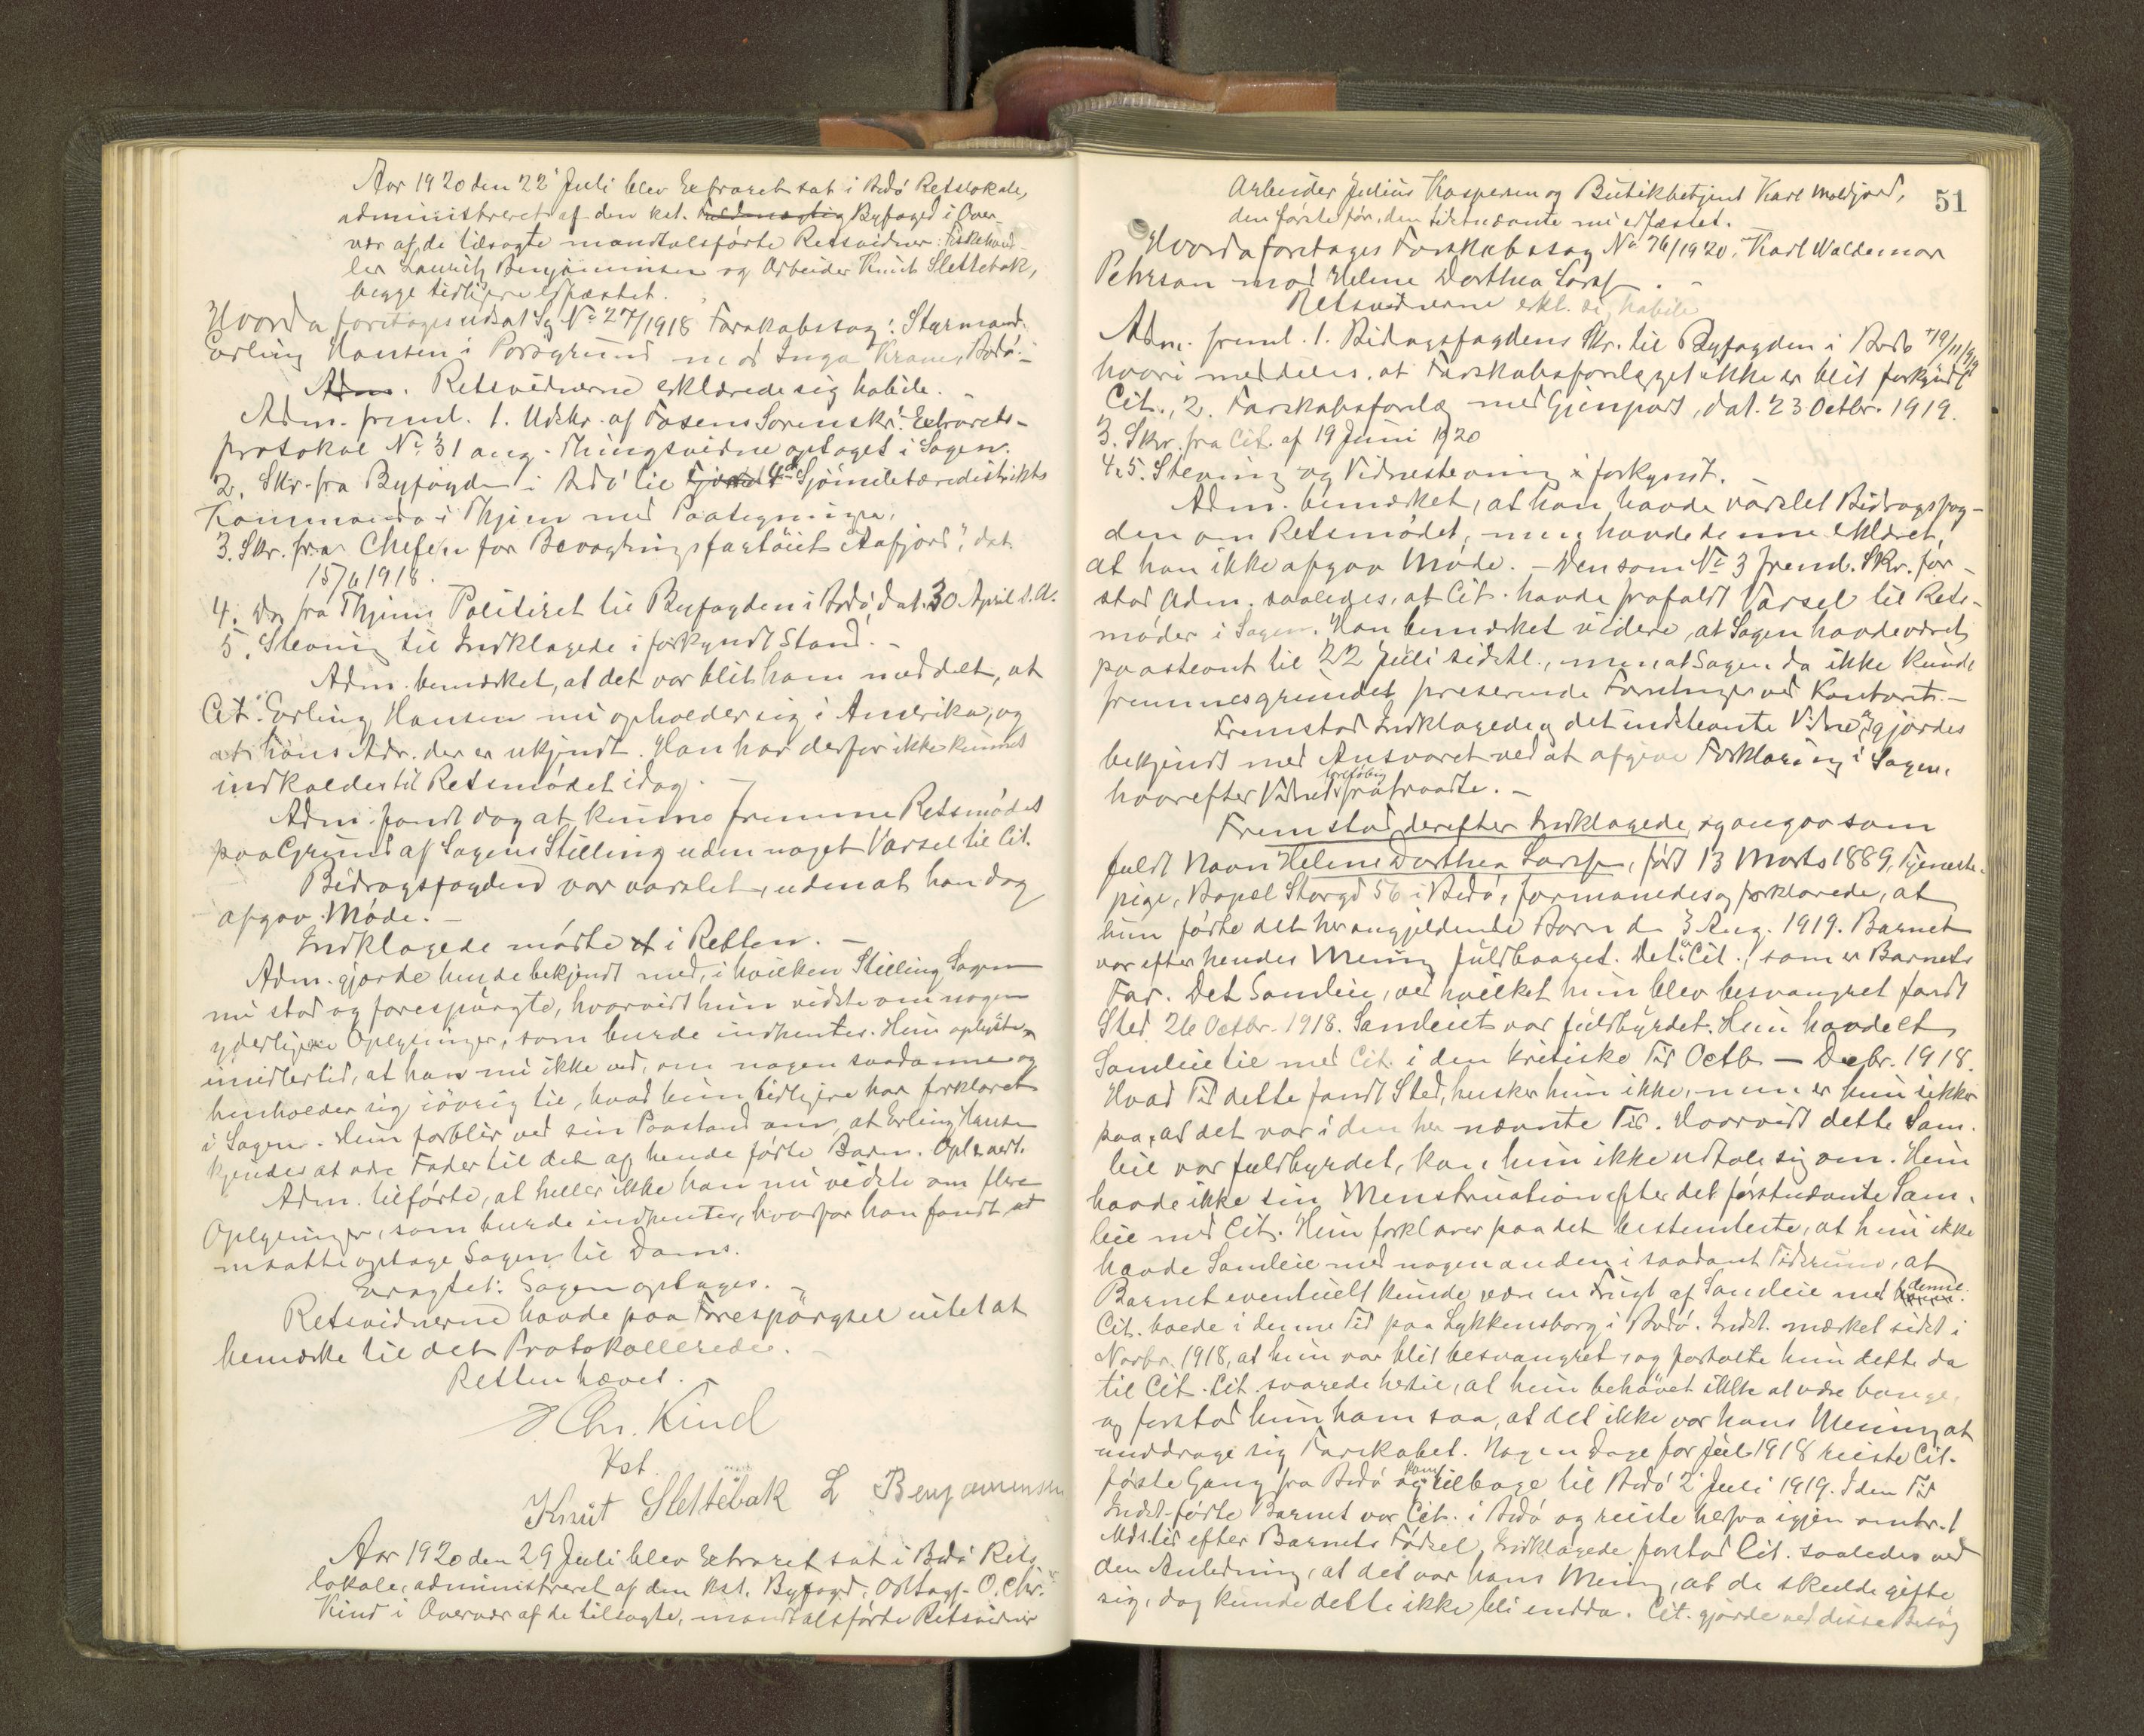 Aar 1920 den 22 Juli blev Extraret sat i Bodö Retslokale,
administreret af den kst. Fuldmægtig Byfoged i Over-
vær af de tilsagte mandtalsførte Retsvidner: Fiskehand-
ler Lauritz Benjaminsen og Arbeider Knut Slettebak,
begge tidligere edfæstet.
Hvorda foretages utsat Sg No 27/1918 Farskabssag: Styrmand
Erling Hansen i Porsgrund mod Inga Krane, Bodö.-
Adm. Retsvidnerne erklærede sig habile. -
Adm. freml. 1. Udskr. af Fosens Sorenskr.: Extrarets-
protokol No 31 ang. Thingsvidne optaget i Sagen.
2. Skr. fra Byfogden i Bodö til 4de Sjömilitæredistrikts
Kommando i Thjem med Paategninger.
3. Skr. fra Chefen for Bevogtningsfartöiet "Aafjord", dat.
1918.
4. Do fra Thjems Politiret til Byfogden i Bodö, dat. 30 April d.A.
5. Stevning til Indklagede i forkyndt Stand. -
Adm. bemærket, at det var blit ham meddelt, at
Cit. Erling Hansen nu opholder sig i Amerika, og
at hans Adr. der er ukjendt. Han har derfor ikke kunnet
indkaldes til Retsmödet idag. -
Adm. fandt dog at kunne fremme Retsmödet
paa Grund af Sagens Stilling uden noget Varsel til Cit.
Bidragsfogden var varslet, uden at han dog
afgav Möde. -
Indklagede mödte i Retten. -
Adm. gjorde hende bekjendt med, i hvilken Stilling Sagen
nu stod og forespurgte, hvorvidt hun vidste om nogen
yderligere Oplysninger, som burde indhentes. Hun oplyste
imidlertid, at han nu ikke ved, om nogen saadanne og
henholder sig iövrig til, hvad hun tidligere har forklaret
i Sagen. Hun forblir ved sin Paastand om, at Erling Hansen
kjendes at være Fader til det af hende fødte Barn. Opl. vedt.
Adm. tilførte, at heller ikke han nu vidste om flere
Oplysninger, som burde indhentes, hvorfor han fandt at
maatte optage Sagen til Doms.
Eragtet: Sagen optages. -
Retsvidnerne havde paa Forespörgsel intet at
bemærke til det Protokollerede. -
Retten hævet.
O Chr. Kind
Kst.
Knut Slettebak L Benjaminsen
Aar 1920 den 29 Juli blev Extraret sat i Bodö Rets-
lokale, administreret af den kst. Byfoged, O. Chr.
Kind i Overvær af de tilsagte, mandtalsførte Retsvidner
51
Arbeider Julius Kaspersen og Butikbetjent Karl Moldjord,
den første før, den sidstnævnte nu edfæstet.
Hvorda foretages Farskabssag No 76/1920: Karl Waldemar
Pehrson mod Helene Dorthea Larsen. -
Retsvidnerne erkl. sig habile
Adm. freml. 1. Bidragsfogdens Skr. til Byfogden i Bodö 19/11/1919
hvori meddeles, at Farskabsforelægget ikke er blit forkyndt
Cit., 2. Farskabsforelæg med Gjenpart, dat. 23 Octbr. 1919.
3. Skr. fra Cit. af 19 Juni 1920
4 & 5. Stevning og Vidnestevning i forkyndt.
Adm. bemærket, at han havde varslet Bidragsfog-
den om Retsmödet, men havde denne erklæret,
at han ikke afgav Möde. - Den som No 3 freml. Skr. for-
stod Adm. saaledes, at Cit. havde frafaldt Varsel til Rets-
möder i Sagen. Han bemærket videre, at Sagen havde været
paastevnt til 22 Juli sidstl., men at Sagen da ikke kunde
fremmes grundet presserende Forretninger ved Kontoret. -
Fremstod Indklagede og det indstevnte Vidne og gjordes
bekjendt med Ansvaret ved at afgive Forklaring i Sagen,
hvorefter Vidnet foreløbig fratraadte. -
Fremstod derefter Indklagede, og angav som
fuldt Navn Helene Dorthea Larsen, født 13 Marts 1889, Tjeneste-
pige, Bopæl Storgd 56 i Bodö, formanedes og forklarede, at
hun fødte det her angjeldende Barn d. 3 Aug. 1919. Barnet
var efter hendes Mening fuldbaaret. Det er Cit., som er Barnets
Far. Det Samleie, ved hvilket hun blev besvangret fandt
Sted 26 Octbr. 1918. Samleiet var fuldbyrdet. Hun havde et
Samleie til med Cit. i den kritiske Tid Octb. - Decbr. 1918.
Hvad Tid dette fandt Sted, husker hun ikke, men er hun sikker
paa, at det var i den her nævnte Tid. Hvorvidt dette Sam-
leie var fuldbyrdet, kan hun ikke udtale sig om. Hun
havde ikke sin Menstruation efter det førstnævnte Sam-
leie med Cit. Hun forklarer paa det bestemteste, at hun ikke
havde Samleie med nogen anden i saadant Tidsrum, at
Barnet eventuelt kunde være en Frugt af Samleie med denne.
Cit. boede i denne Tid paa Lykkensborg i Bodö. Indst. mærket sidst i
Novbr. 1918, at hun var blit besvangret, og fortalte hun dette da
til Cit. Cit. svarede hertil, at hun behövet ikke at være bange,
og forstod hun ham saa, at det ikke var hans Mening at
unddrage sig Farskabet. Nogen Dage før Jul 1918 reiste Cit.
første Gang fra Bodö og kom tilbage til Bodö 2 Juli 1919. I den Tid
Indst. fødte Barnet var Cit. i Bodö og reiste herfra igjen omtr. 1
Mds. tid efter Barnets Fødsel. Indklagede forstod Cit. saaledes ved
den Anledning, at det var hans Mening, at de skulde gifte
sig, dog kunde dette ikke bli endda. Cit. gjorde ved disse Besög